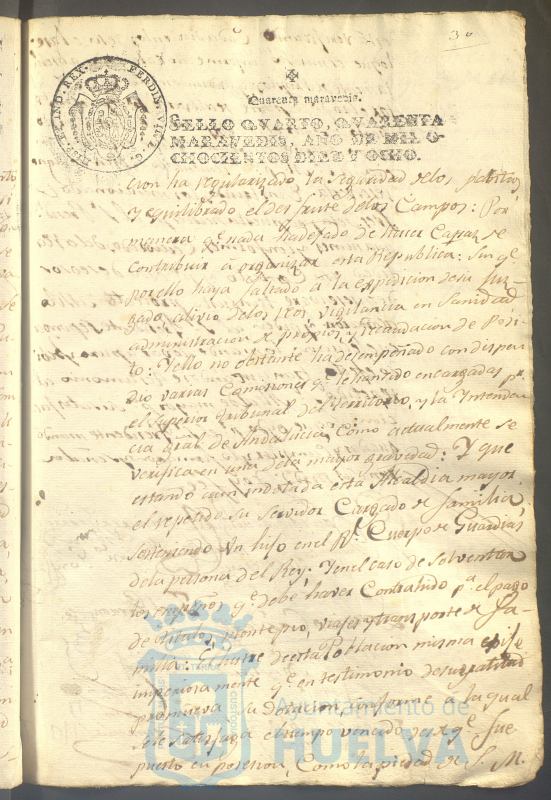 30
HISP. ET IND. REX. FERDIN. VII. D. G.
Quarenta maravedis.
SELLO QVARTO, QVARENTA
MARAVEDIS, AÑO DE MIL O-
CHOCIENTOS DIEZ Y OCHO.
cion ha regularizado la seguridad delos
y equilibrado el desfrute delos Campos: Por
manera qe. nada hadejado de hacer Capaz de
contribuir á organizar esta Republica: Sin qe.
porello haya faltado á la expedicion desu Juz-
gado alivio delos reos, vigilancia en Sanidad
administracion de propios, y recaudacion de Posi-
to: Yello no obstante ha desempeñado con dispen-
dio varias Comisiones qe. lehansido encargadas pr.
el Superior tribunal del territorio, y la Intenden-
cia gral de Andalucia, como actualmente se
verifica en una dela mayor gravedad: Y que
estando aun indotada esta Alcaldia mayor
el repetido su servidor Cargado de familia,
sosteniendo Un hijo enel Rl. Cuerpo de Guardias
dela persona del Rey; Yenel caso de solventar
los empeños qe. debe haver Contrahido pa. el pago
de titulo, monte pio, viajes y transporte de Fa-
milia: El lustre deesta Poblacion misma exije
imperiosamente qe. en testimonio desu gratitud
promueva su dotacion, informe a la qual
sele satisfaga el tiempo vencido desde qe. fue
puesto en posesion, Como la piedad de S. M.
Ayuntamiento de
HUELVA